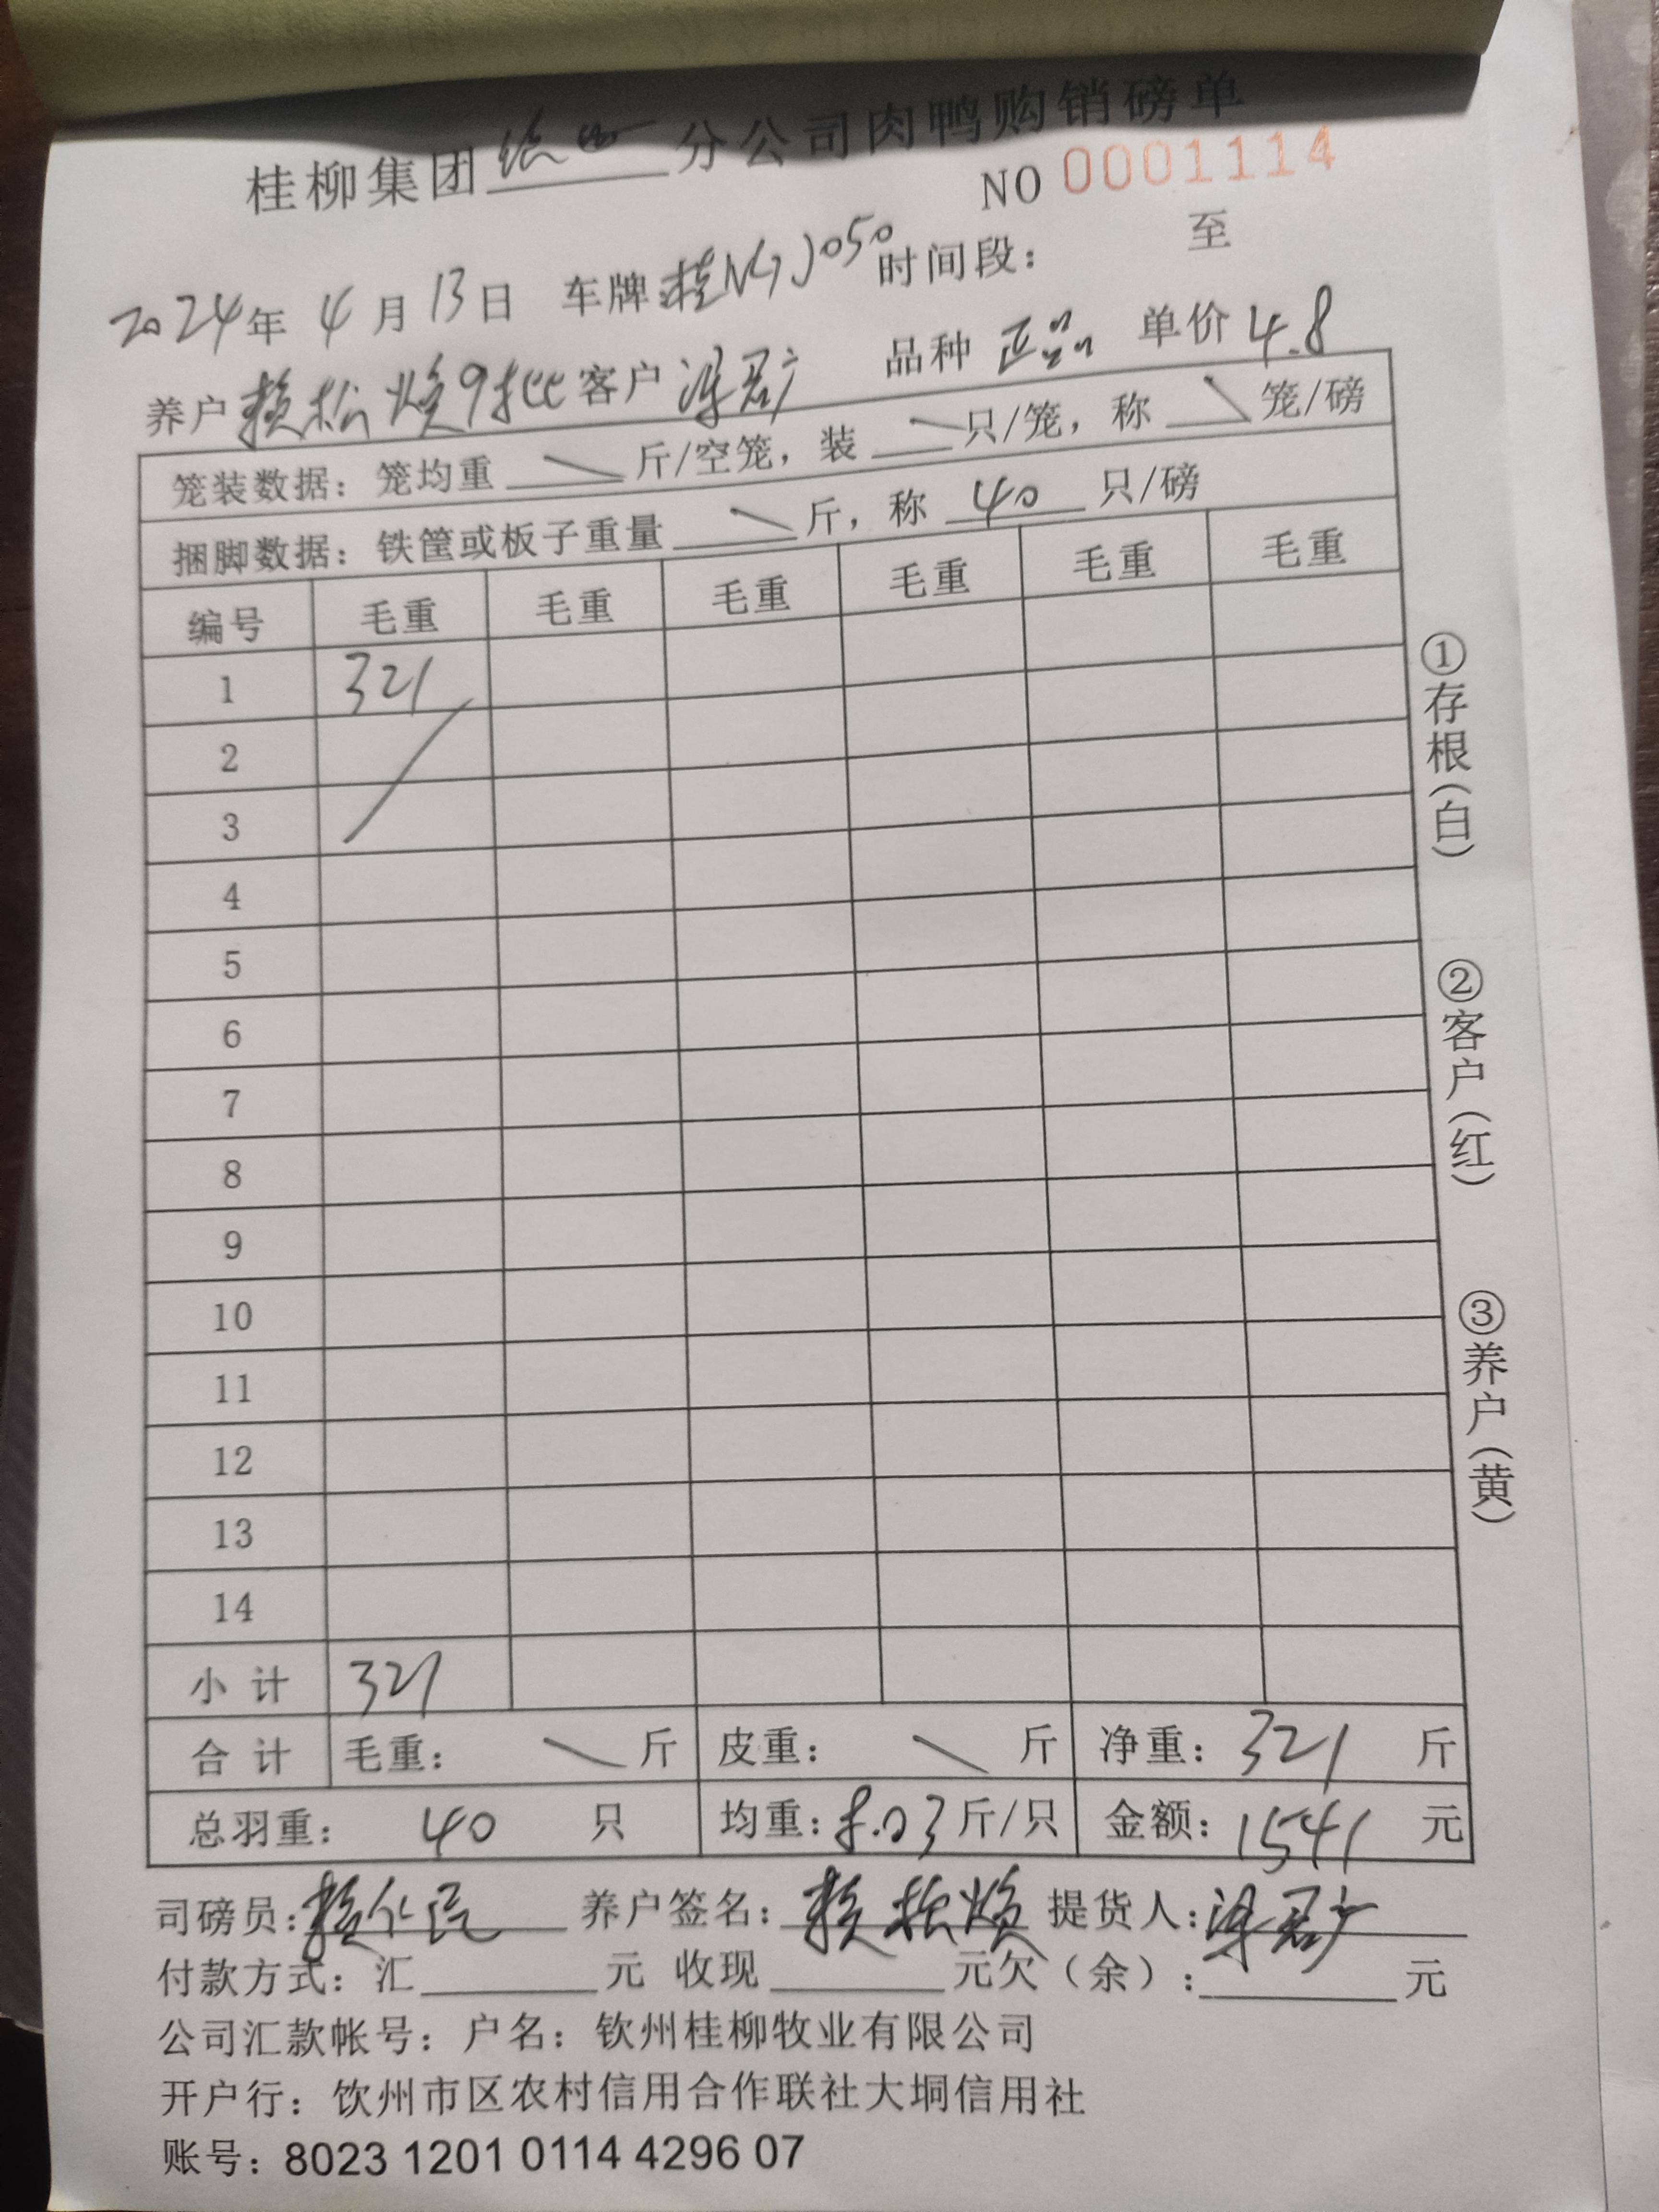 桂柳集团 分公司肉鸭购销磅单
NO 0001114
2024年 4月13日 车牌 桂N 050 时间段: 至
养户 赖松焕9批 客户 品种 正品 单价 4.8
笼装数据: 笼均重 斤/空笼, 装 只/笼, 称 笼/磅
捆脚数据: 铁筐或板子重量 斤, 称 40 只/磅
编号 毛重 毛重 毛重 毛重 毛重 毛重
1 321
2
3
4
5
6
7
8
9
10
11
12
13
14
小 计 321
合 计 毛重: 斤 皮重: 斤 净重: 321 斤
总羽重: 40 只 均重: 8.03 斤/只 金额: 1541 元
司磅员: 养户签名: 赖松焕 提货人:
付款方式: 汇 元 收现 元欠(余): 元
公司汇款帐号: 户名: 钦州桂柳牧业有限公司
开户行: 钦州市区农村信用合作联社大垌信用社
账号: 8023 1201 0114 4296 07
①存根(白)
②客户(红)
③养户(黄)